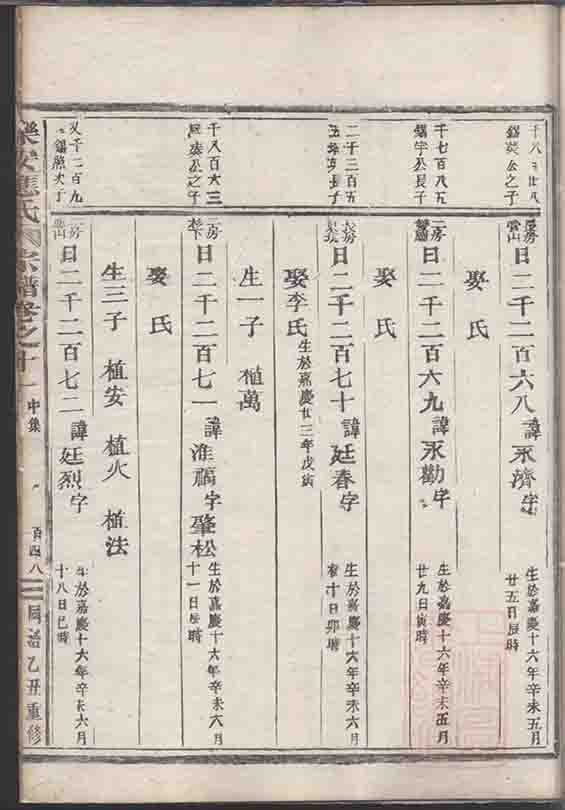 千八百廿八
錫英公之子
房
雲山
日二千二百六八諱永濟字
生於嘉慶十六年辛未五月
廿五日辰時
娶氏
千七百八五
錫字公長子
二房
日二千二百六九諱永勸字
生於嘉慶十六年辛未五月
廿九日寅時
娶氏
二千三百五
公長子
房
日二千二百七十諱廷春字
生於嘉慶十六年辛未六月
初十日卯時
娶李氏生於嘉慶廿三年戊寅
生一子 植萬
千八百六三
公之子
二房
日二千二百七一諱淮福字肇松
生於嘉慶十六年辛未六月
十一日辰時
娶氏
生三子 植安 植火 植法
又千二百九
錫
二房
雲山
日二千二百七二諱廷烈字
生於嘉慶十六年辛未六月
十八日巳時
樂安應氏宗譜卷之十一 中集 百四八 同治乙丑重修